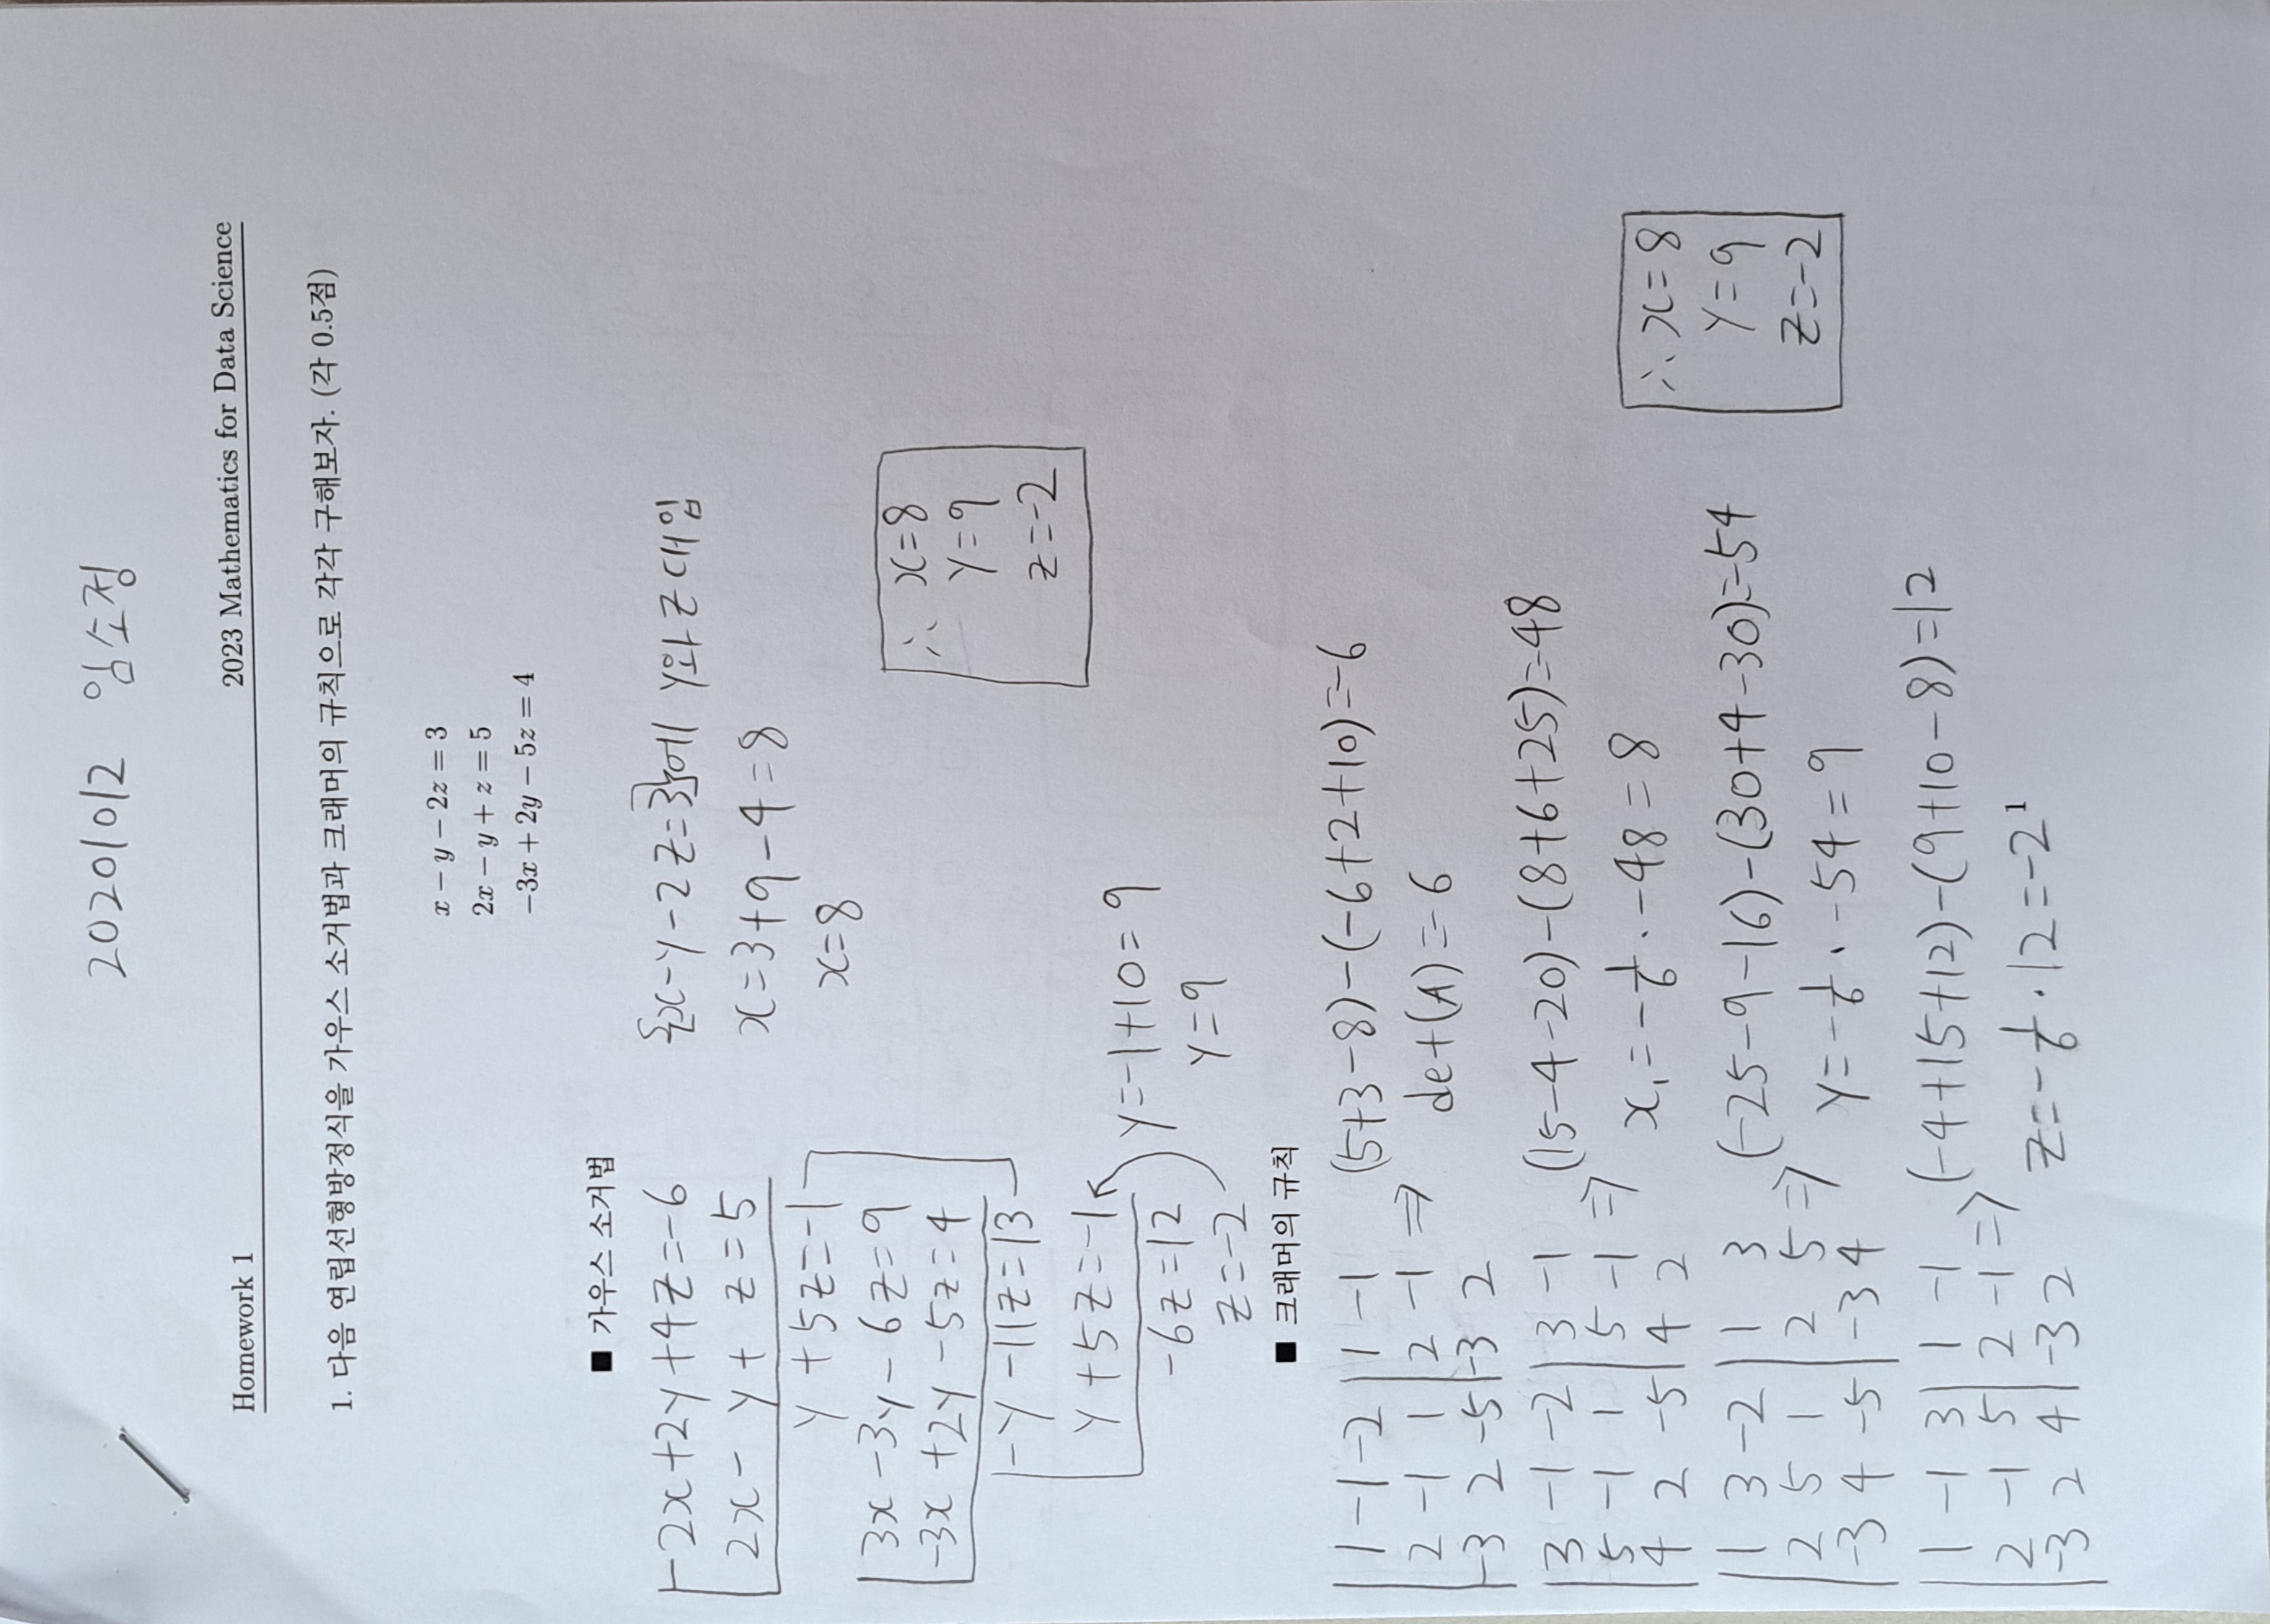 20201012 임소정
Homework 1 2023 Mathematics for Data Science
1. 다음 연립선형방정식을 가우스 소거법과 크래머의 규칙으로 각각 구해보자. (각 0.5점)
x − y − 2z = 3
2x − y + z = 5
−3x + 2y − 5z = 4
■ 가우스 소거법
-2x+2y+4z=-6
2x- y+ z=5
y +5z=-1
3x -3y- 6z=9
-3x +2y -5z=4
-y -11z=13
y +5z=-1
-6z=12
z=-2
y=-1+10=9
y=9
{x-y-2z=3}에 y와 z 대입
x=3+9-4=8
x=8
∴ x=8
y=9
z=-2
■ 크래머의 규칙
| 1 -1 -2 | 1 -1
2 -1 1 | 2 -1 ⇒ (5+3-8)-(-6+2+10)=-6
-3 2 -5 | -3 2
det(A)=-6
| 3 -1 -2 | 3 -1
5 -1 1 | 5 -1 ⇒ (15-4-20)-(8+6+25)=-48
4 2 -5 | 4 2
x₁=-1/6·-48=8
| 1 3 -2 | 1 3
2 5 1 | 2 5 ⇒ (-25-9-16)-(30+4-30)=-54
-3 4 -5 | -3 4
y=-1/6·-54=9
| 1 -1 3 | 1 -1
2 -1 5 | 2 -1 ⇒ (-4+15+12)-(9+10-8)=12
-3 2 4 | -3 2
z=-1/6·12=-2
∴ x=8
y=9
z=-2
1